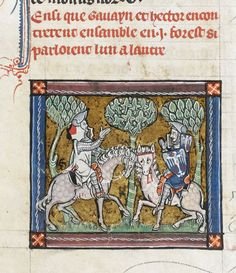 Ensi que Gauayn et hector encon
trerent ensamble en .i. forest si
parloient lun a lautre